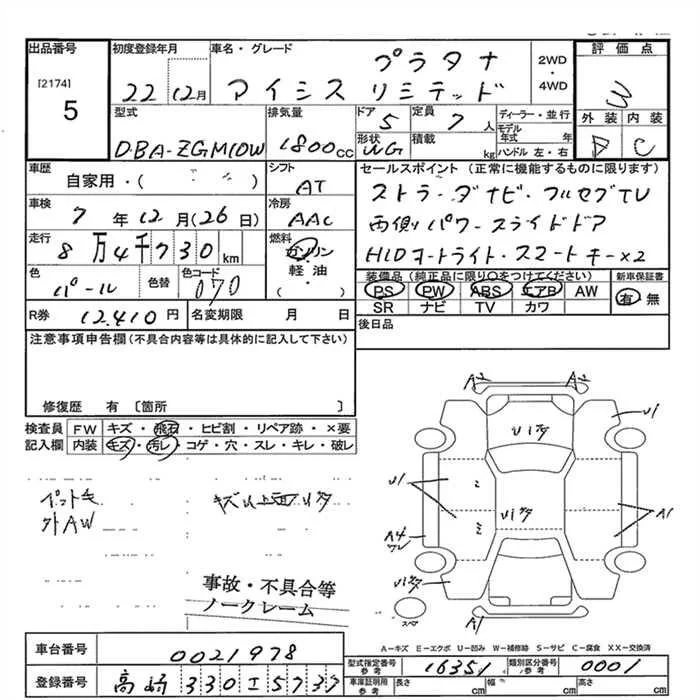 出品番号 初度登録年月 車名・グレード プラタナ 2WD・4WD 評価点
[2174] 5 22 12月 アイシス リミテッド 3
型式 排気量 ドア 5 定員 7人 ディーラー・並行 外装 内装
DBA-ZGM10W 1800cc 形状 WG 積載 kg モデル年式 年 ハンドル 左・右 D C
車歴 自家用・( ) シフト AT セールスポイント (正常に機能するものに限ります)
車検 7年12月(26日) 冷房 AAC ストラーダナビ・フルセグTV
両側パワースライドドア
走行 8万4千730km 燃料 ガソリン・軽油 ( ) HIDヘートライト・スマートキー×2
色 パール 色替 色コード 070 装備品 (純正品に限り○をつけてください) 新車保証書
PS PW ABS エアB AW 有 無
SR ナビ TV カワ
R券 12,410円 名変期限 月 日 後日品
注意事項申告欄(不具合内容等は具体的に記入して下さい)
修復歴 有 〔箇所 〕
検査員 FW キズ・飛石・ヒビ割・リペア跡・×要
記入欄 内装 キズ・汚レ・コゲ・穴・スレ・キレ・破レ
外AW
事故・不具合等
ノークレーム
A2 A2
U1
U1キズ
U1
U1キズ
A1
A4
U1キズ
スペ
A1
A-キズ E-エクボ U-凹み W-補修跡 S-サビ C-腐食 XX-交換済
車台番号 0021978
型式指定番号 参考 16351 類別区分番号 参考 0001
登録番号 高崎 330 エ 5737
車庫証明用 参考 長さ cm 幅 cm 高さ cm